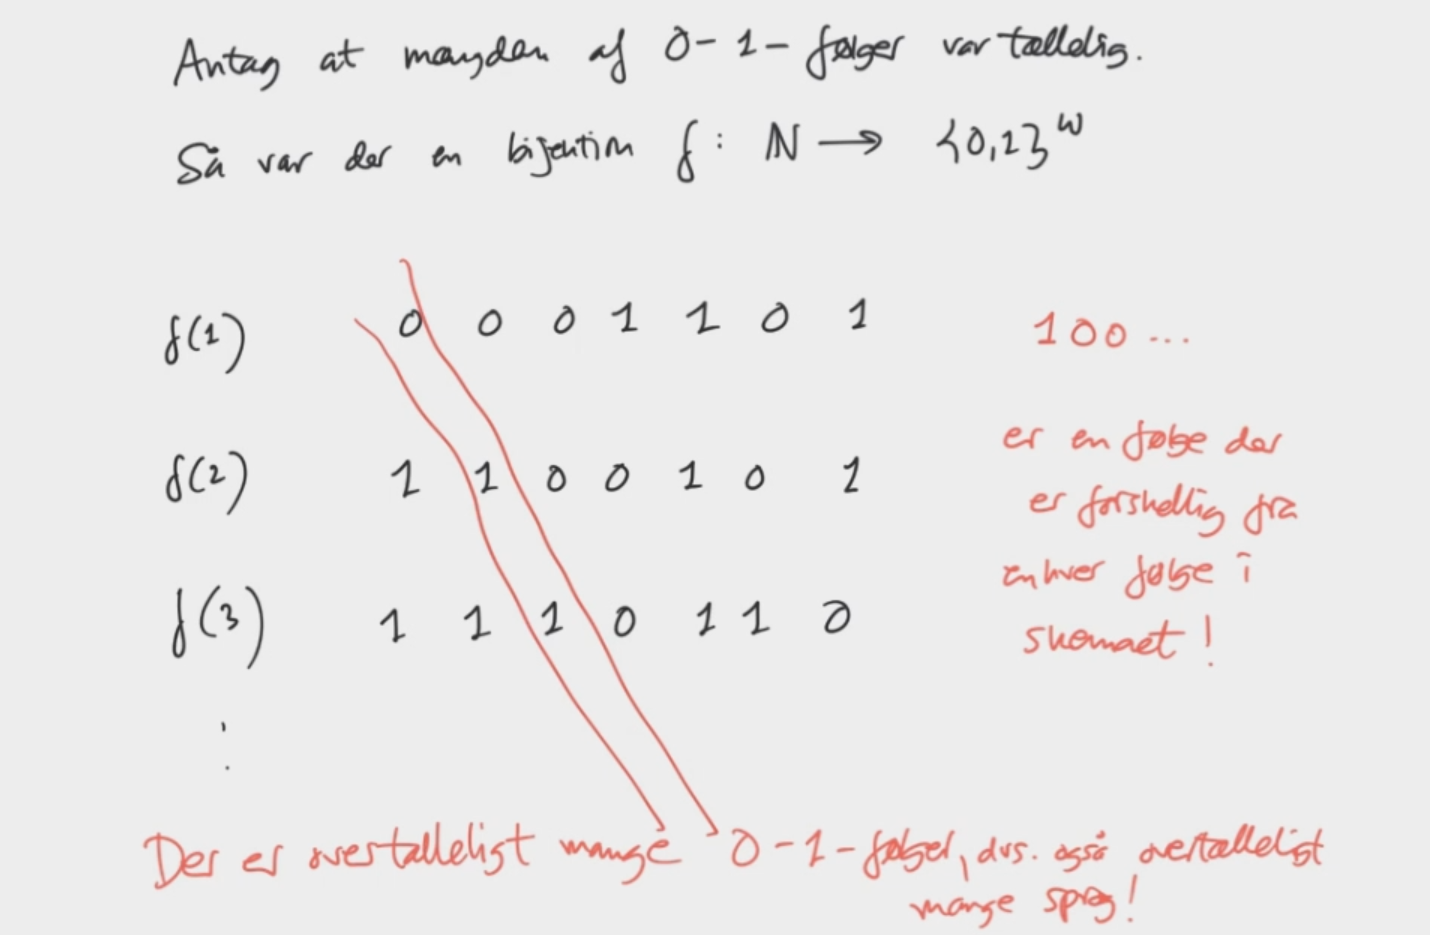 Antag at mængden af 0-1-følger var tællelig.
Så var der en bijektion f: ℕ → {0,1}^ω
f(1) 0 0 0 1 1 0 1
100...
f(2) 1 1 0 0 1 0 1
er en følge der
er forskellig fra
enhver følge i
skemaet!
f(3) 1 1 1 0 1 1 0
:
Der er overtælleligt mange 0-1-følger, dvs. også overtælleligt
mange sprog!